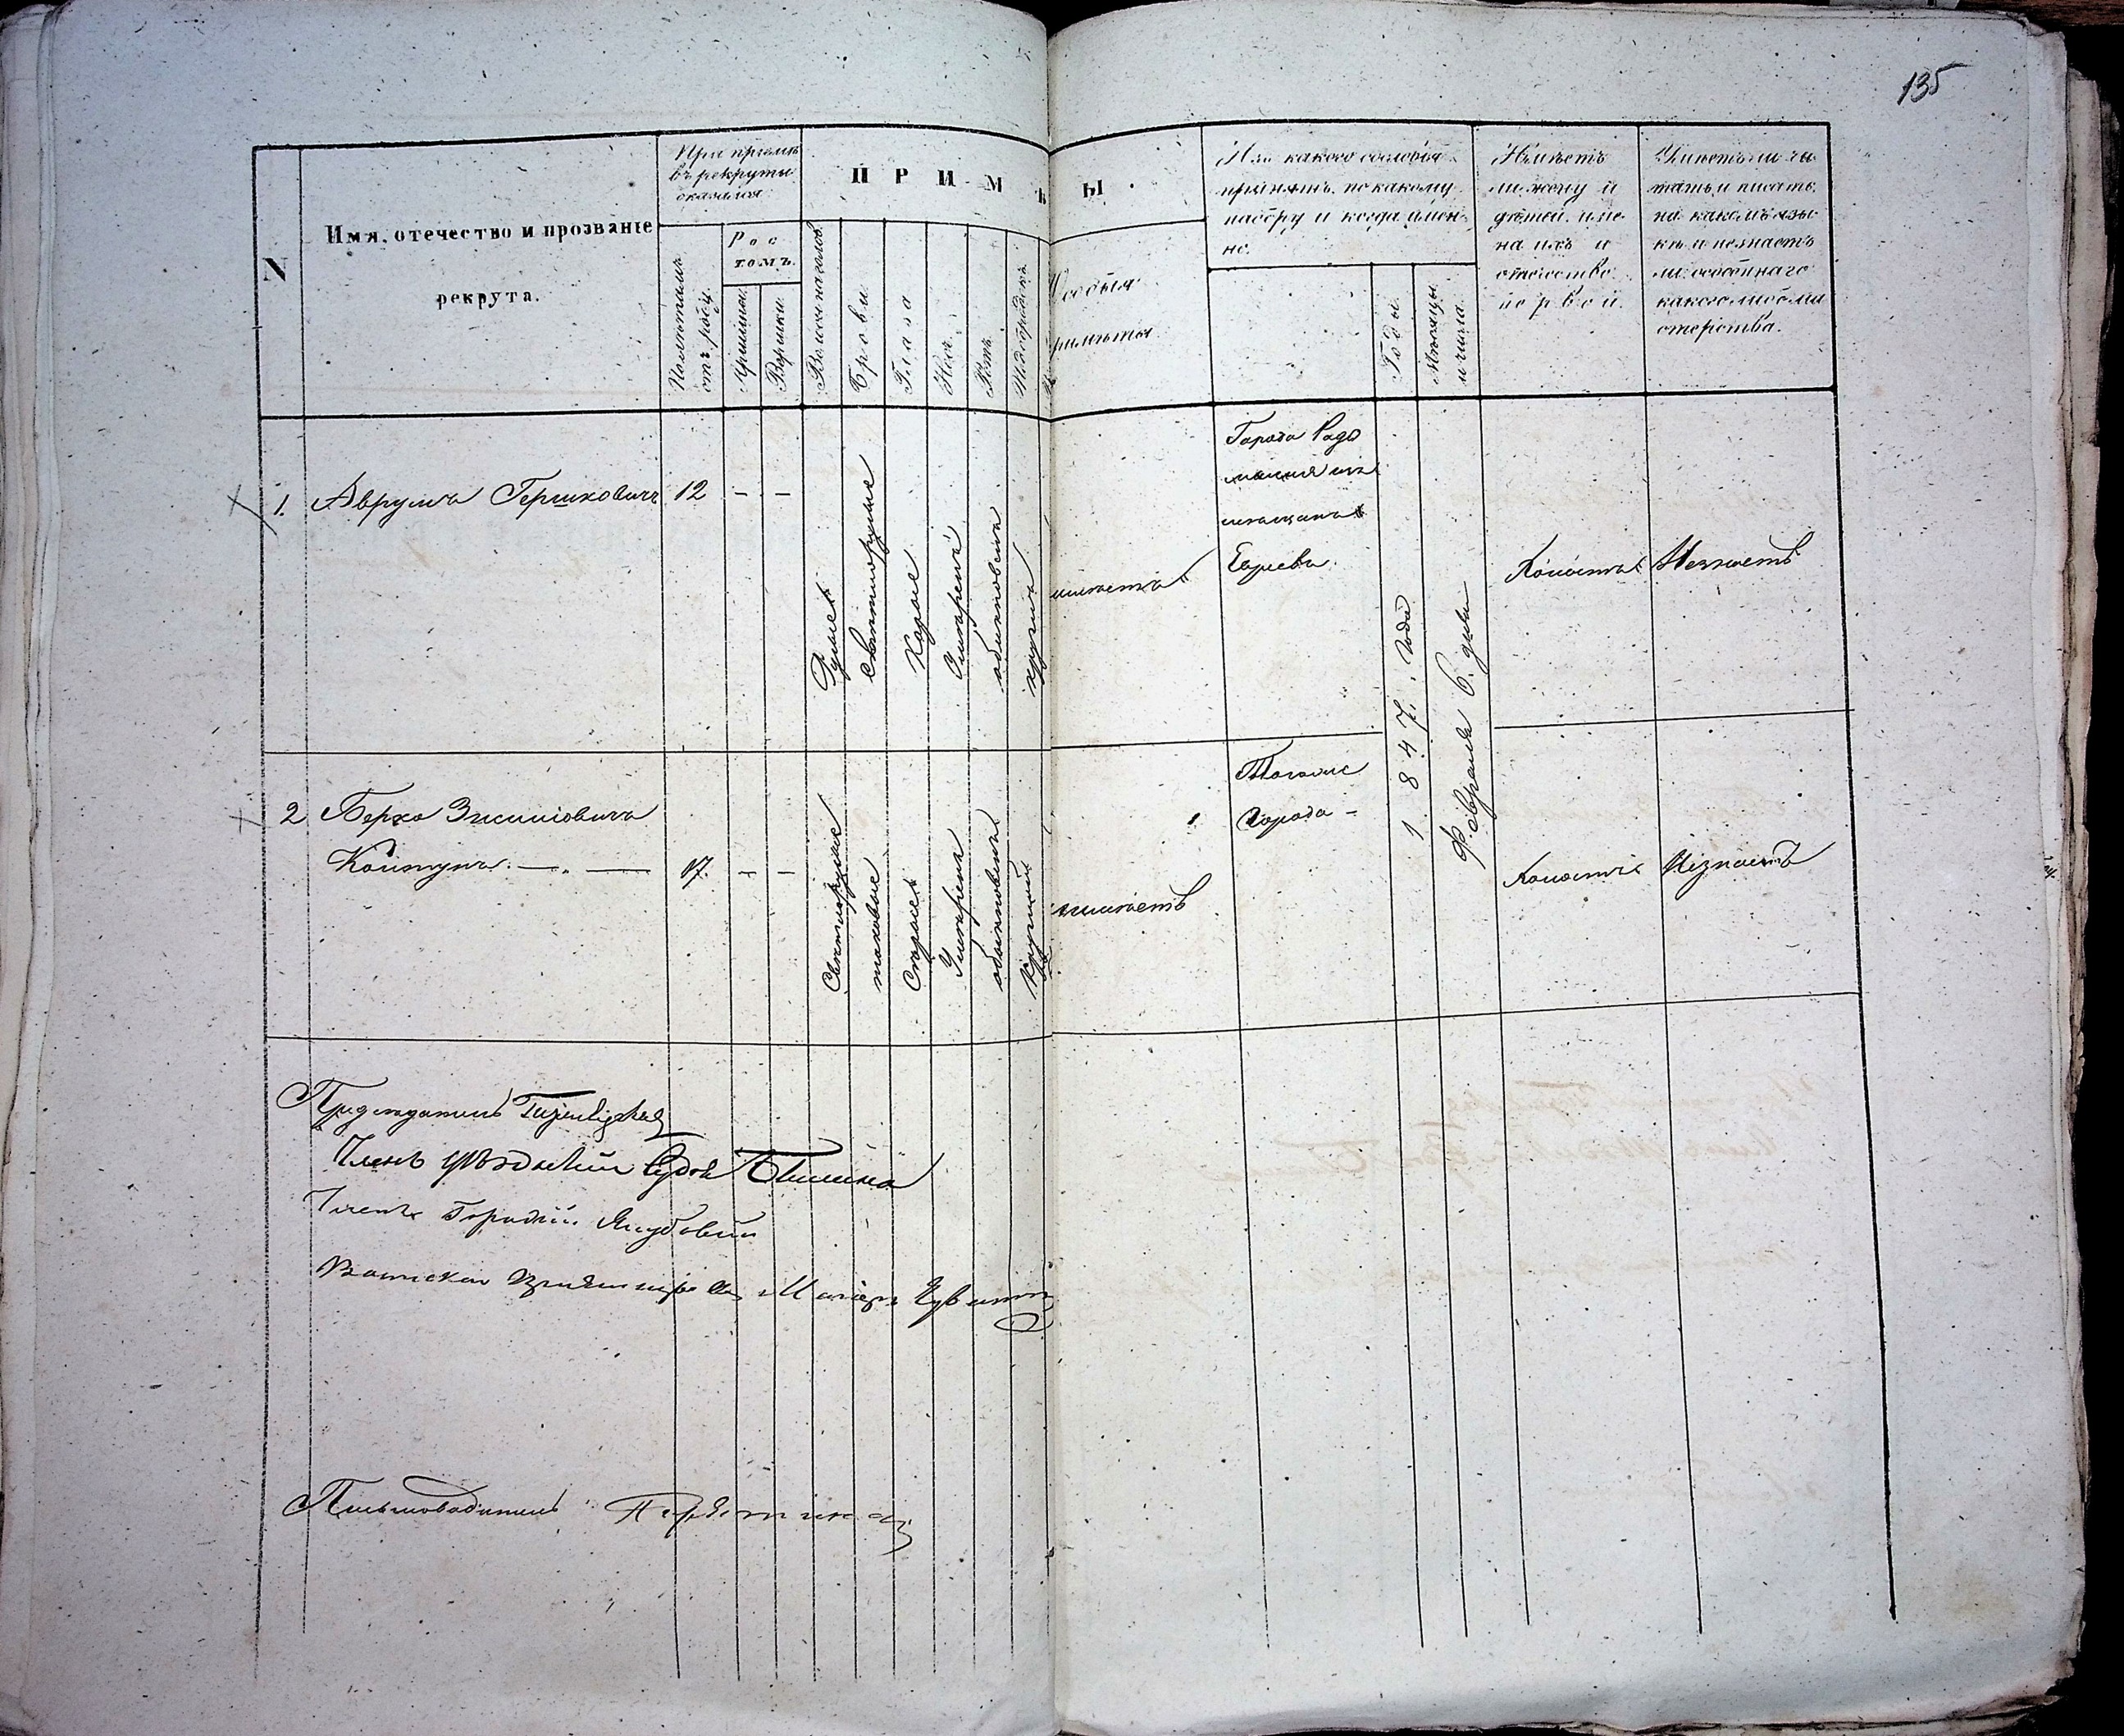 135
N
Имя, отечество и прозваніе
рекрута.
При пріемѣ
въ рекруты
оказался
Полнотамъ
отъ роду.
Рос
томъ.
Аршины.
Вершки.
ПРИМѢТЫ.
Волосы на головѣ
Брови.
Глаза
Носъ.
Ротъ.
Подбородокъ.
Особыя
примѣты
Изъ какого сословія
принятъ, по какому
набору и когда имен-
но.
Годы.
Мѣсяцы
и числа.
Имѣетъ
ли жену и
дѣтей, име-
на ихъ и
отечество
первой.
Умѣетъ ли чи-
тать и писать,
на какомъ язы-
кѣ и незнаетъ
ли особеннаго
какого либо ма
стерства.
1. Аврумъ Гершковичъ 12 - -
Русые
свѣтлорусые
Карие
Умѣренъ
обыкновенъ
кругла
неимѣетъ
Города Радо
мысля изъ
мѣщанъ
Евреевъ.
1847. года
Февраля 6. дня
Холостъ
Незнаетъ
2 Берко Зисиліовичъ
Колтунъ. —„— 17. - -
Свѣтлорусые
таковые
Сѣрые
Умѣренъ
обыкновенъ
Круглый
неимѣетъ
Тогоже
Города -
Холостъ
Незнаетъ
Предсѣдатель
Членъ уѣздный Судья
Членъ Городни. Якубовій
Воинскій Маіоръ
Письмоводитель